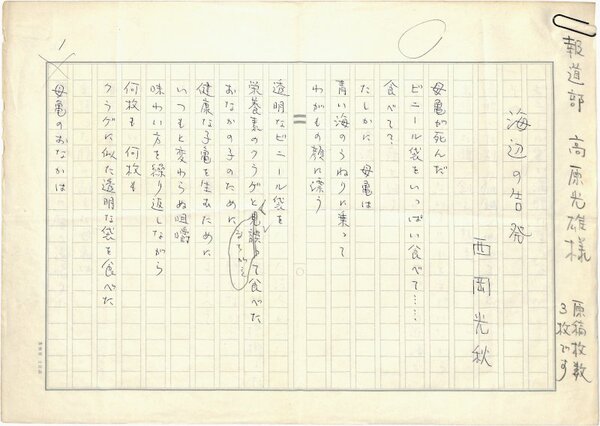 報道部 高原光雄様
原稿枚数
3枚です
海辺の告発
西岡光秋
母亀が死んだ
ビニール袋をいっぱい食べて……
食べてて?
たしかに 母亀は
青い海のうねりに乗って
わがもの顔に漂う
透明なビニール袋を
栄養素のクラゲと見誤って食べた
まちがえ
おなかの子のために
健康な子亀を生むために
いつもと変わらぬ咀嚼
味わい方を繰り返しながら
何枚も 何枚も
クラゲに似た透明な袋を食べた
母亀のおなかは
1